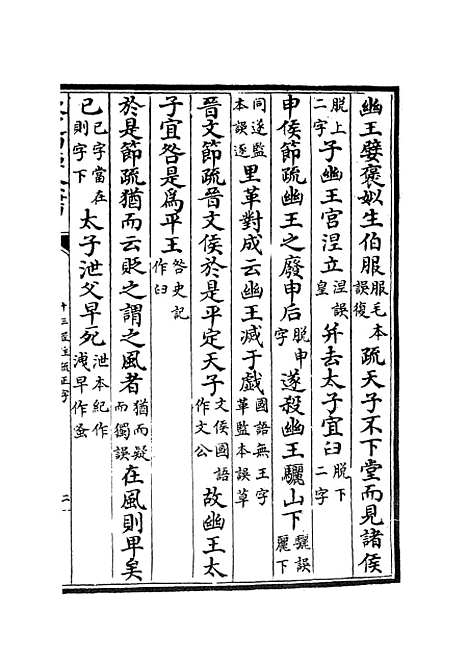 幽王嬖褒姒生伯服服毛本誤復疏天子不下堂而見諸侯
脫上二字子幽王宮涅立涅誤皇幷去太子宜臼脫下二字
申侯節疏幽王之廢申后脫申字遂殺幽王驪山下驪誤麗下
同遂監本誤逐里革對成云幽王滅于戲國語無王字革監本誤草
晉文節疏晉文侯於是平定天子文侯國語作文公故幽王太
子宜咎是爲平王咎史記作臼
於是節疏猶而云貶之謂之風者猶而疑而獨誤在風則卑矣
已已字當在則字下太子泄父早死泄本紀作洩早作蚤
十三經注疏正字